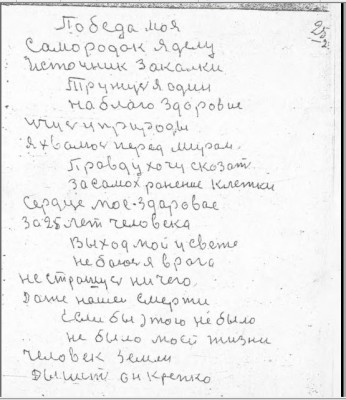 Победа моя
25
Самородок я делу
Источник Закалки
Тружуся я один
на благо Здоровие
ищу у природы
Я хвалюсь перед миром.
Правду хочу сказат.
За самохранение Клетки
Сердце мое-здаровае
За 25 лет человека
Выход мой у свете
не боюся я врага
не страшуся ничего.
Даже нашей смерти
Если бы этого не было
не было моей жизни
Человек Земли
Дышит он крепко